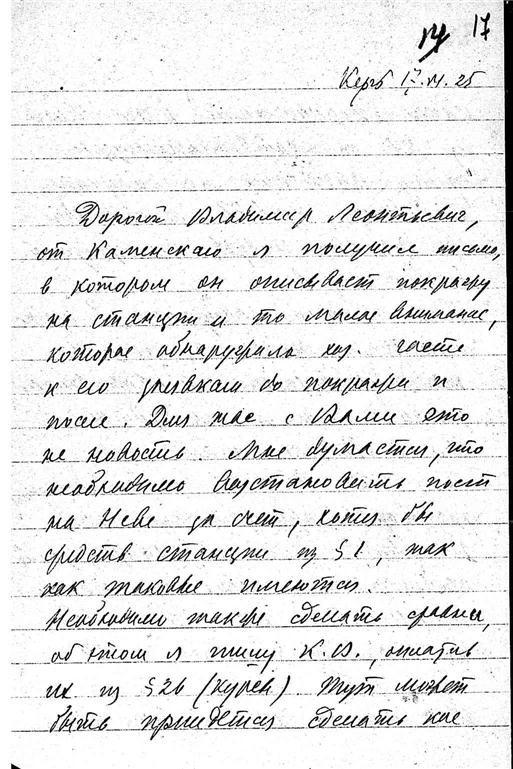 14 17
Керчь 17.VI.25
Дорогой Владимир Леонтьевич,
от Каменскаго я получил письмо,
в котором он описывает покражу
на станции и то малое внимание,
которое обнаружила хоз. части
к его заявкам до покражи и
после. Для нас с Вами это
не новость. Мне думается, что
необходимо восстановить пост
на Неве за счет, хотя бы
средств станции из § 1, так
как таковые имеются.
Необходимо также сделать
об этом я пишу К.В., оплатив
их из § 26 ( ) Тут может
быть придется сделать кое